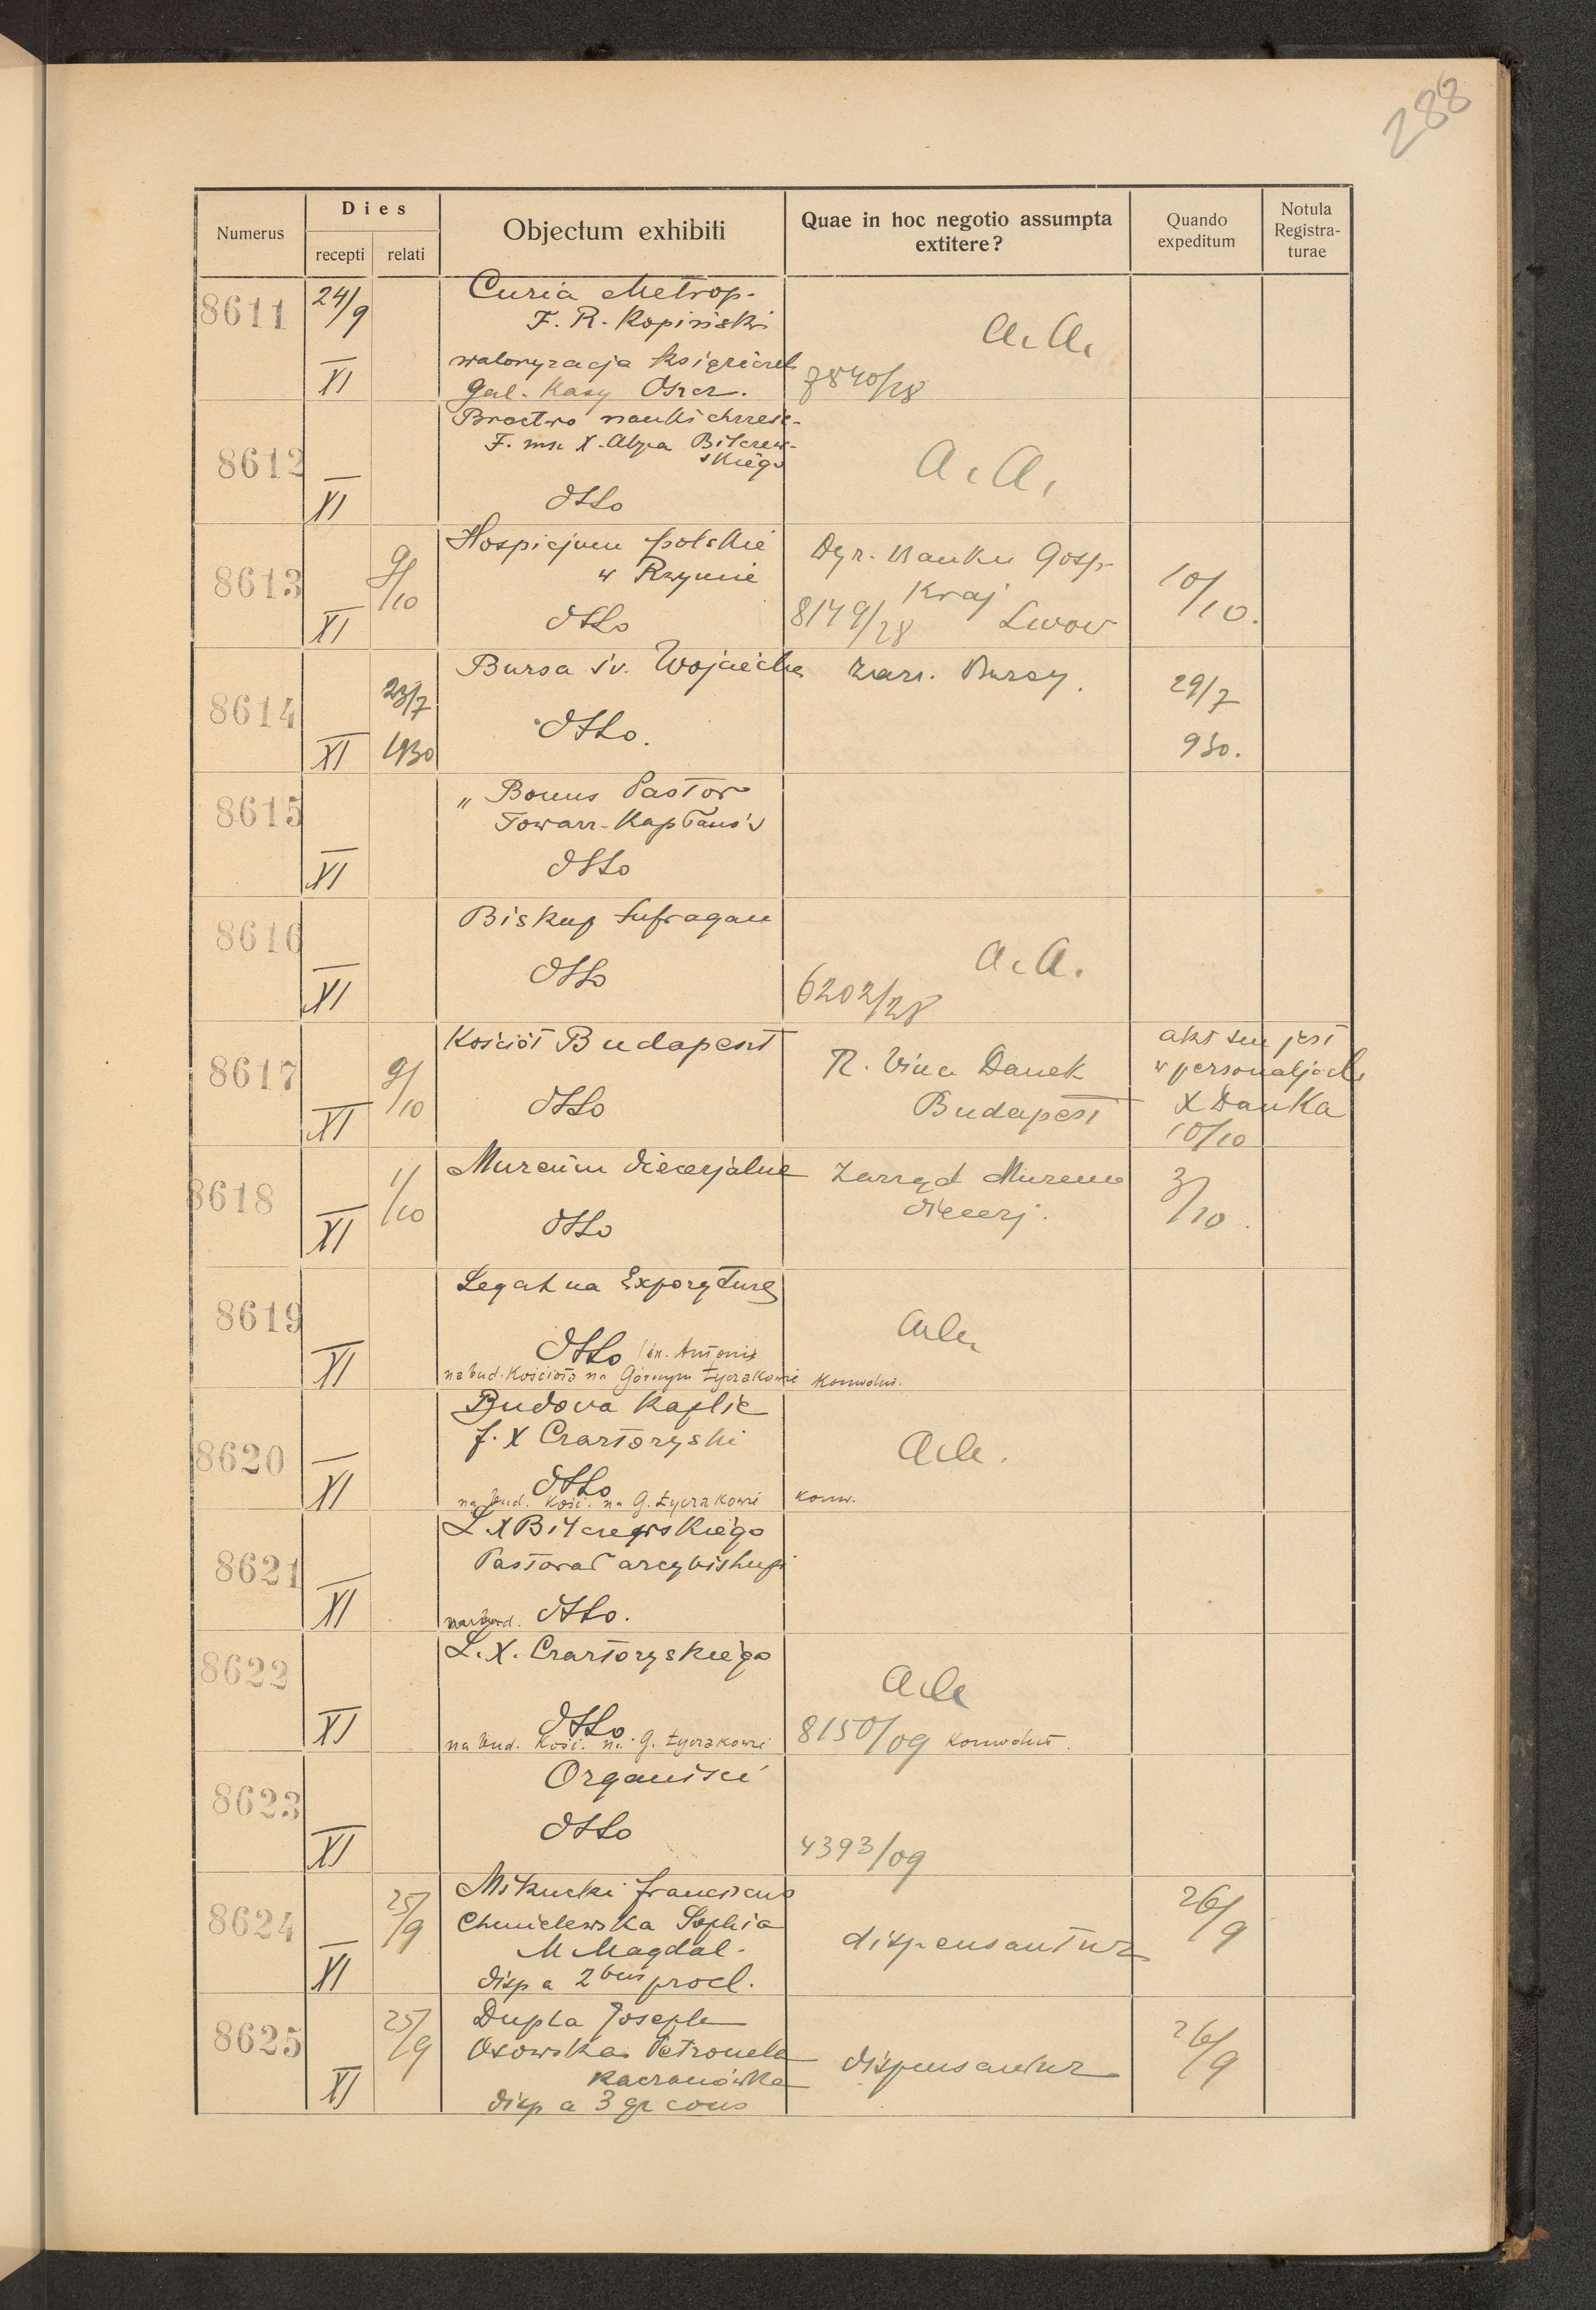 288
Numerus
Dies
recepti
relati
Objectum exhibiti
Quae in hoc negotio assumpta
extitere?
Quando
expeditum
Notula
Registra-
turae
8611
24/9
XI
Curia Metrop.
F. R. Kopiński
waloryzacja książeczek
Gal. Kasy Oszcz.
a. a.
7840/28
8612
XI
Bractwo nauki chrześc.
F. im. X. Abpa Bilczew-
skiego
dtto
a. a.
8613
XI
9/10
Hospicjum polskie
w Rzymie
dtto
Dyr. Banku Gosp.
Kraj
8149/28 Lwow
10/10.
8614
XI
23/7
1930
Bursa św. Wojciecha
dtto.
Zarz. Bursy.
29/7
930.
8615
XI
„Bonus Pastor
Towarz. Kapłanów
dtto
8616
XI
Biskup Sufragan
dtto
a. a.
6202/28
8617
XI
9/10
Kościół Budapeszt
dtto
R. Vinc. Danek
Budapest
akt ten jest
w personaljach
X Danka
10/10
8618
XI
1/10
Muzeum diecezjalne
dtto
Zarząd Muzeum
diecezj.
3/10.
8619
XI
Legat na Expozyturę
dtto św. Antoni
na bud. Kościoła na Górnym Łyczakowie
konwolut.
8620
XI
Budowa Kaplic
f. X Czartoryski
dtto
na bud. Kośc. na G. Łyczakowie
konw.
8621
XI
L. X Bilczewskiego
Pastorał arcybiskupi
dtto.
8622
XI
L. X. Czartoryskiego
dtto
na bud. Kośc. na G. Łyczakowie
8150/09 konwolut.
8623
XI
Organiści
dtto
4393/09
8624
XI
25/9
Mikucki Franciscus
Chmielewska Sophia
M Magdal.
disp a 2bus procl.
dispensantur
26/9
8625
XI
25/9
Dupla Joseph
Osowska Petronela
Kaczanówka
disp a 3 gr cons
dispensantur
26/9